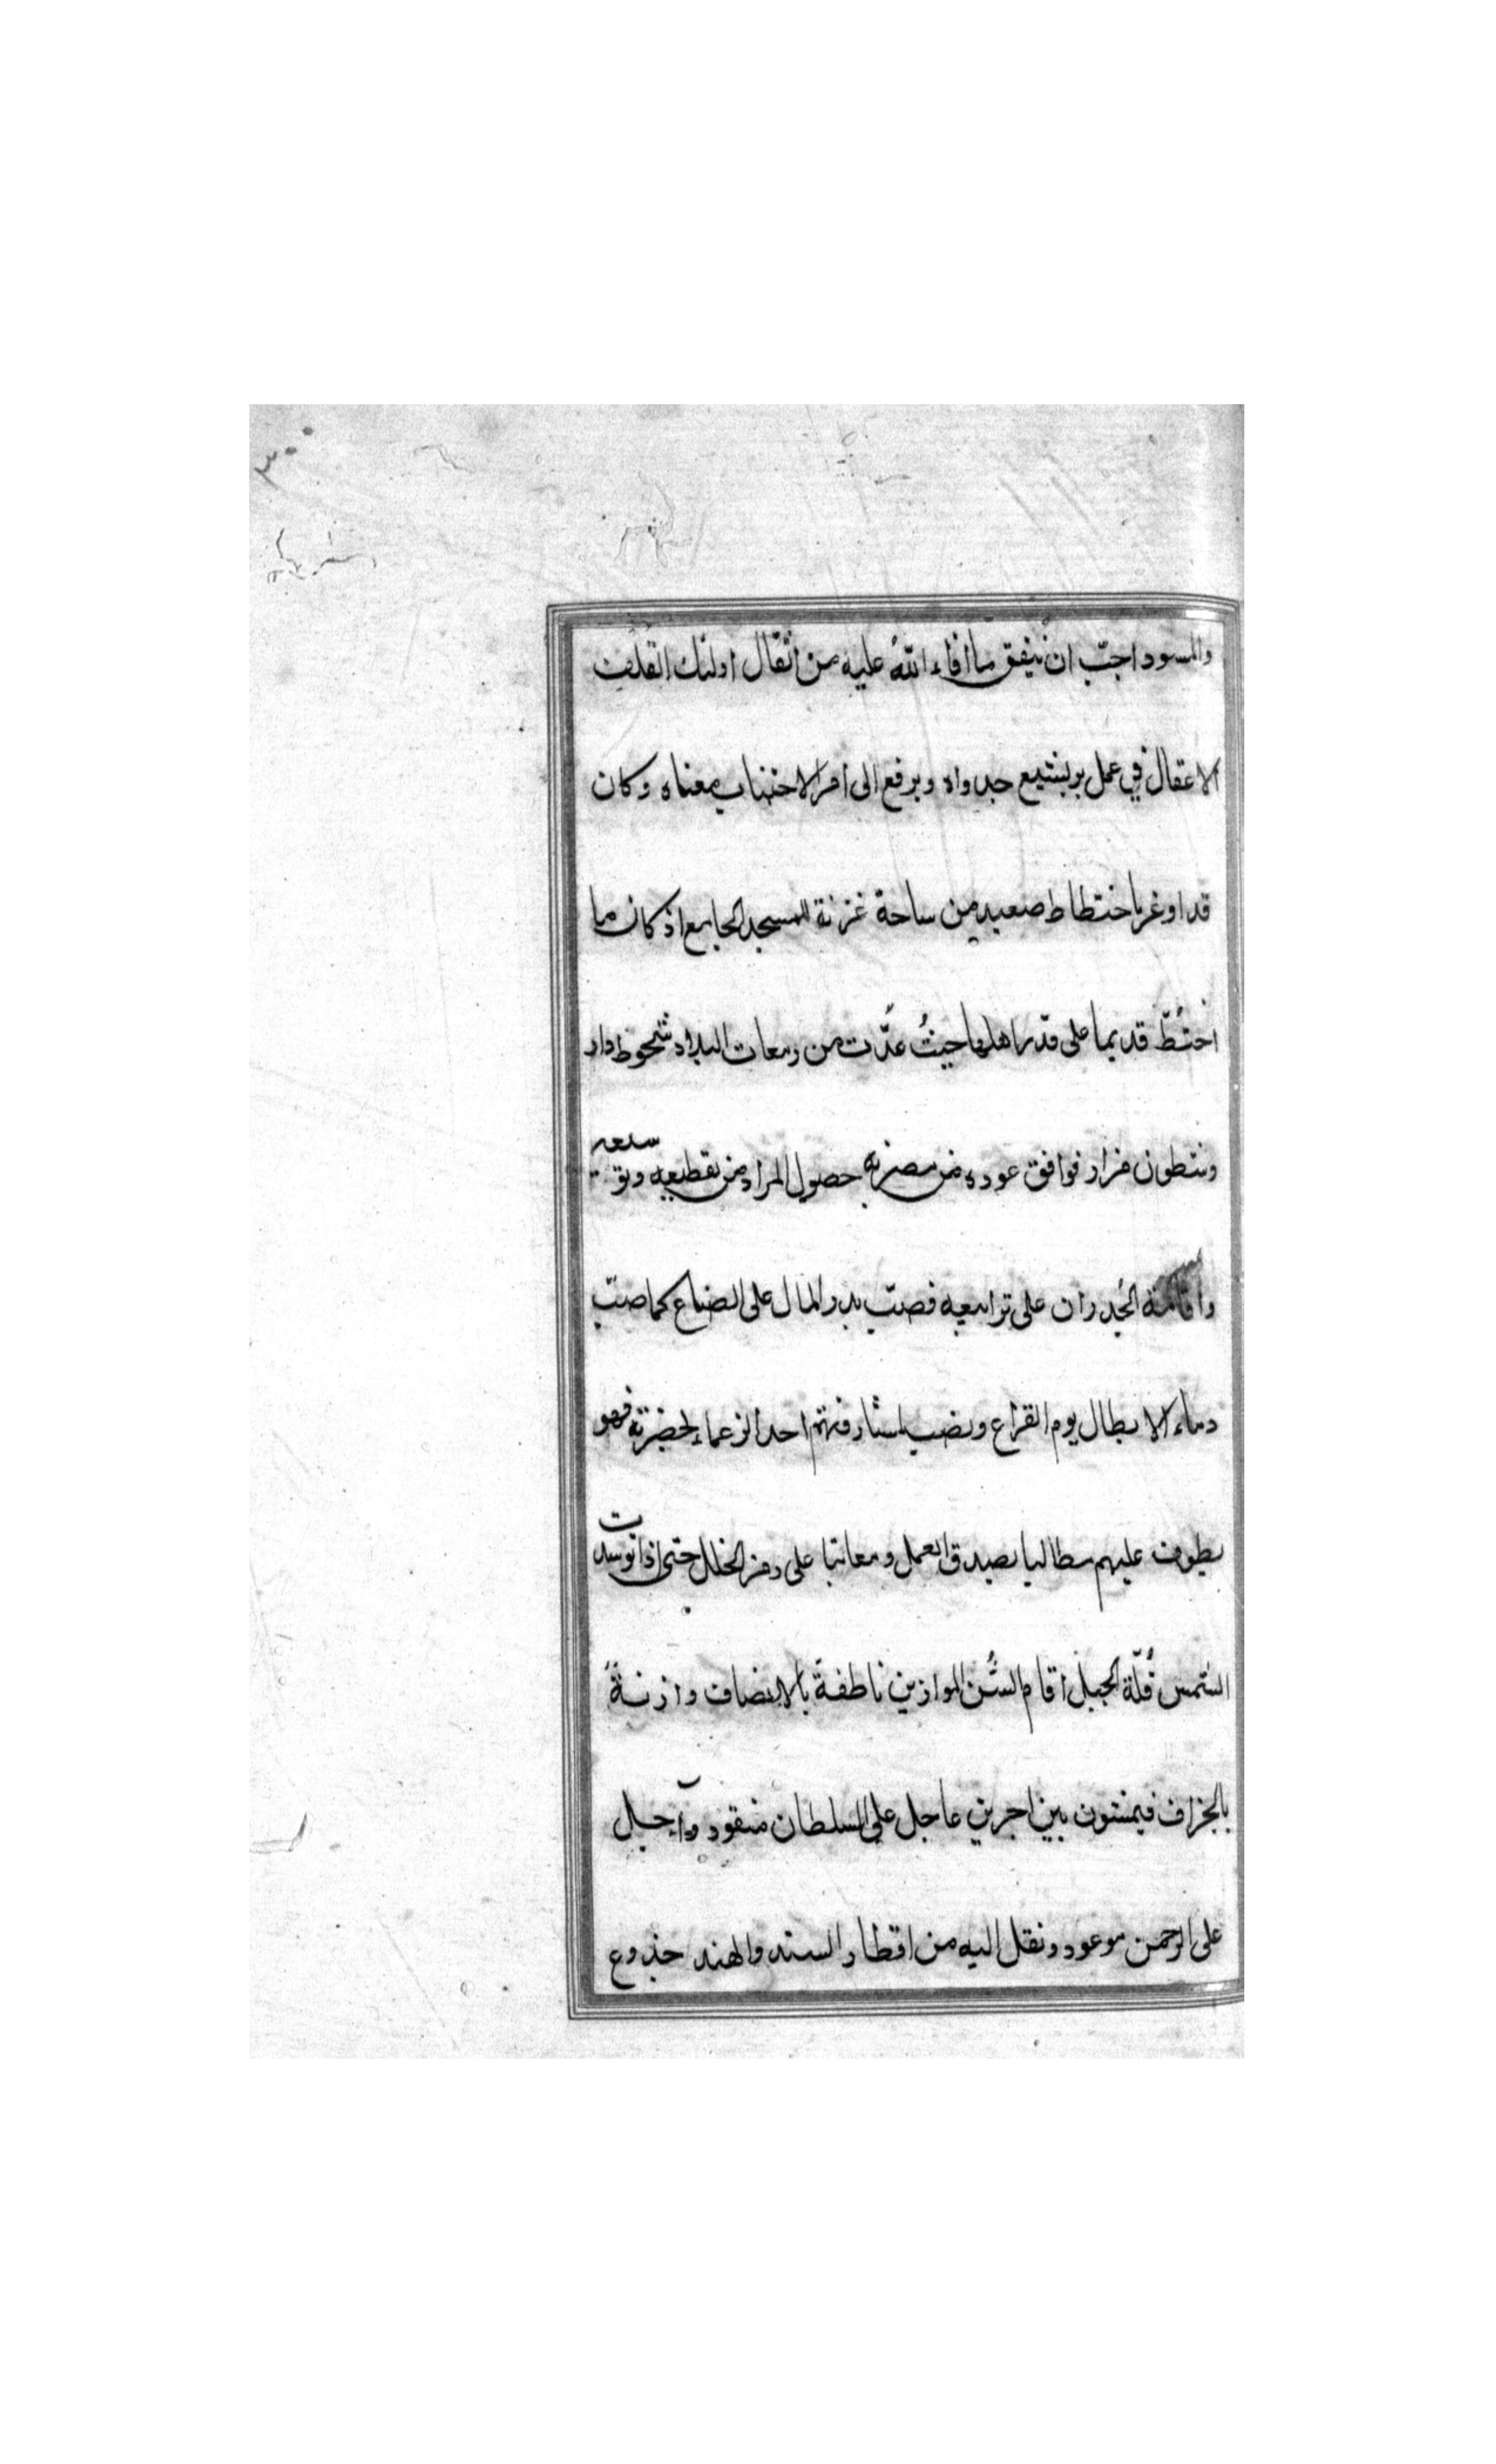 ٣٠٠
والمسود احبّ ان ينفق ما افاء اللهُ عليه من اثقال اولئك القلف
الاعقال في عمل بر يشيع جدواه ويرفع الى امر الاحتساب معناه وكان
قد اوغر باختطاط صعيد من ساحة غزنة للمسجد الجامع اذ كان ما
اختُطّ قديما على قدر اهلها حيثُ عدّت من ربعات البلاد شحوط دار
وشطون مزار فوافق عوده من مضربه حصول المراد من تقطيعه وتوسعه
واقامة الجُدران على ترابيعه فصبّ بدر المال على الصناع كما صبّ
دماء الابطال يوم القراع ونصب لمشارفتهم احد الزعماء لحضرته فهو
يطوف عليهم مطالبا بصدق العمل ومعاتبا على دهن الخلل حتى اذا توسدت
الشمس قُلّة الجبل اقام السُن الموازين ناطقة بالانصاف وازنةً
بالجزاف فيمسون بين اجرين عاجل على السلطان منقود وآجل
على الرحمن موعود ونقل اليه من اقطار السند والهند جذوع